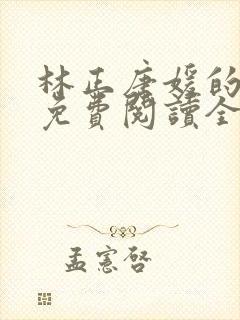 林正唐媛的
免費閱讀全
孟憲啓